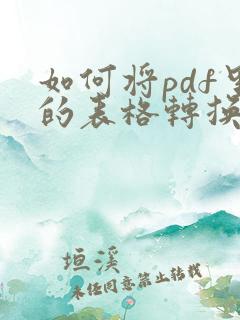 如何将pdf里
的表格轉換
垣溪
未经同意禁止转载